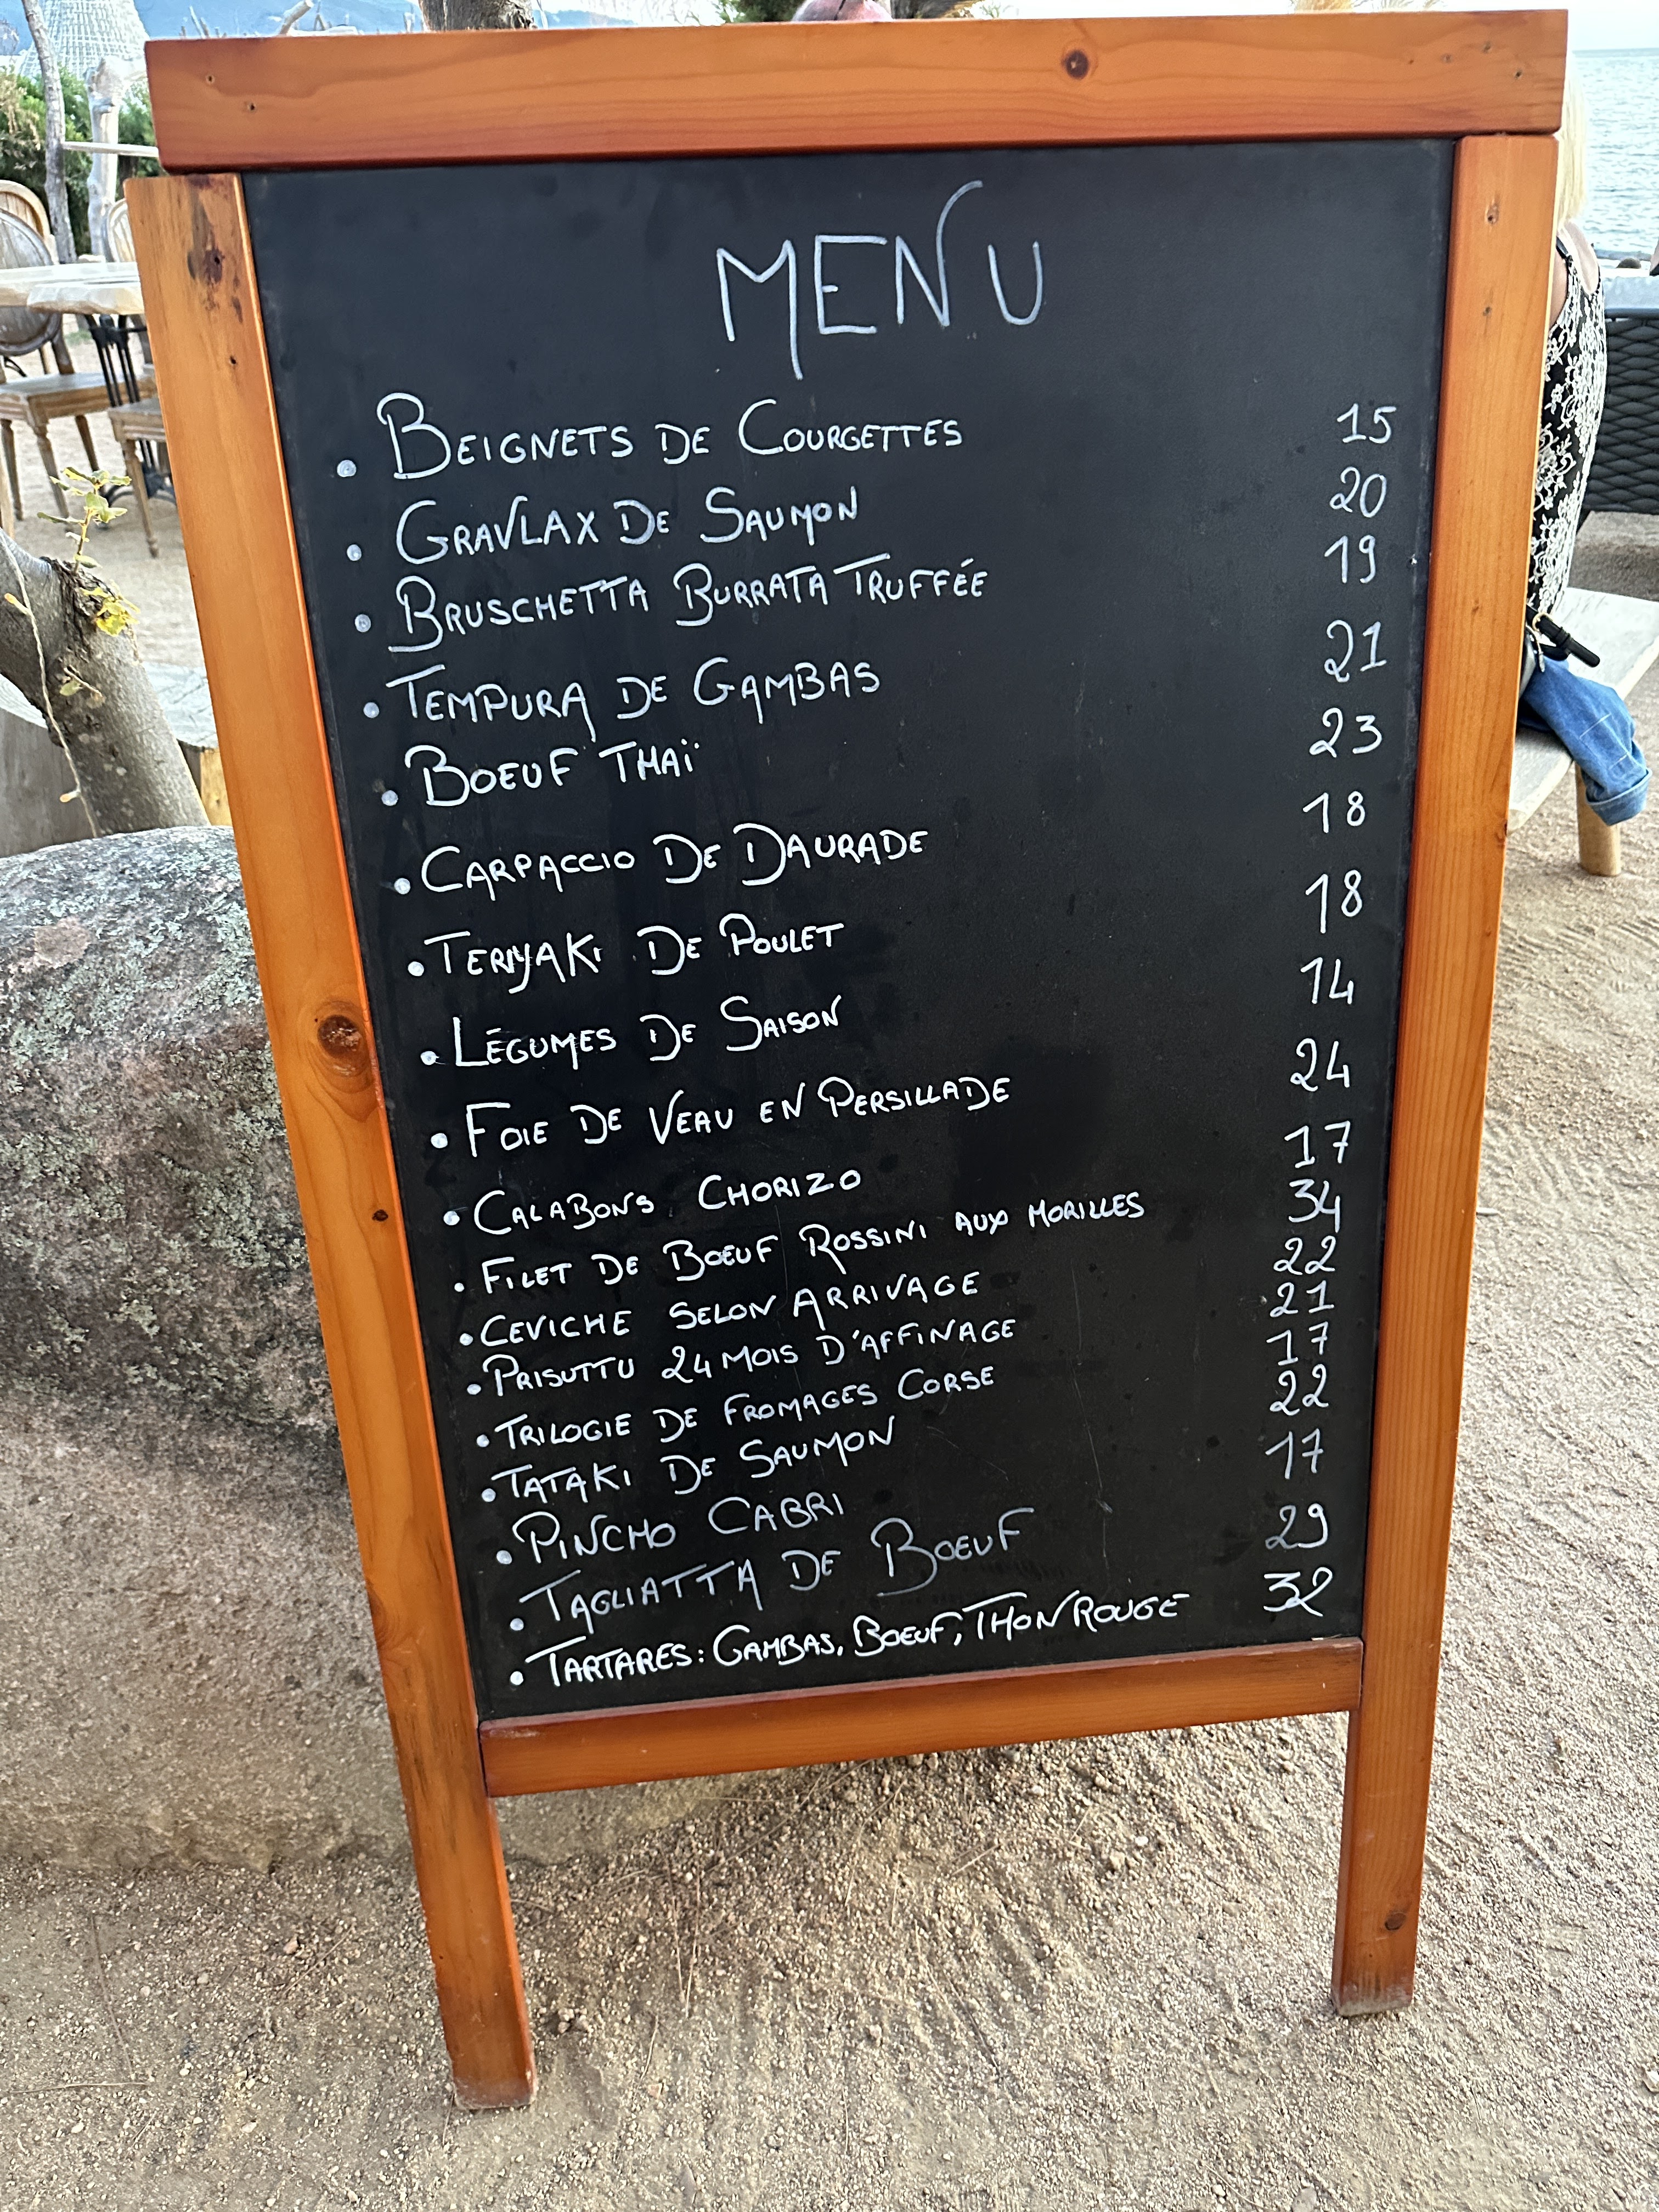 MENU
• BEIGNETS DE COURGETTES 15
• GRAVLAX DE SAUMON 20
• BRUSCHETTA BURRATA TRUFFÉE 19
• TEMPURA DE GAMBAS 21
• BOEUF THAÏ 23
• CARPACCIO DE DAURADE 18
• TERIYAKI DE POULET 18
• LÉGUMES DE SAISON 14
• FOIE DE VEAU EN PERSILLADE 24
• CALABONS CHORIZO 17
• FILET DE BOEUF ROSSINI AUX MORILLES 34
• CEVICHE SELON ARRIVAGE 22
• PRISUTTU 24 MOIS D'AFFINAGE 21
• TRILOGIE DE FROMAGES CORSE 17
• TATAKI DE SAUMON 22
• PINCHO CABRI 17
• TAGLIATTA DE BOEUF 29
• TARTARES: GAMBAS, BOEUF, THON ROUGE 32